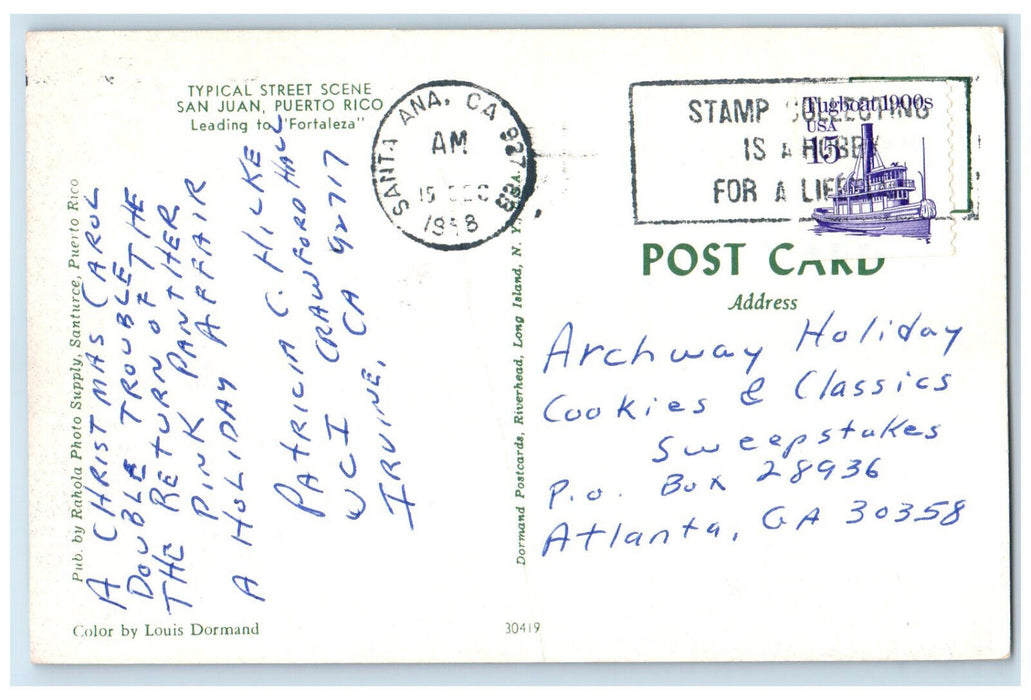 TYPICAL STREET SCENE
SAN JUAN, PUERTO RICO
Leading to "Fortaleza"
Pub. by Rahola Photo Supply, Santurce, Puerto Rico
A CHRISTMAS CAROL
DOUBLE TROUBLE
THE RETURN OF THE
PINK PANTHER
A HOLIDAY AFFAIR
PATRICIA C. HILKE
UCI CRAWFORD HALL
IRVINE, CA 92717
Color by Louis Dormand
SANTA ANA, CA 927
AM
15 DEC
Dormand Postcards, Riverhead, Long Island, N. Y., U.S.A.
30419
STAMP COLLECTING
IS A HOBBY
FOR A
Tugboat 1900s
USA
15
POST CARD
Address
Archway Holiday
Cookies & Classics
Sweepstakes
P.O. Box 28936
Atlanta, GA 30358